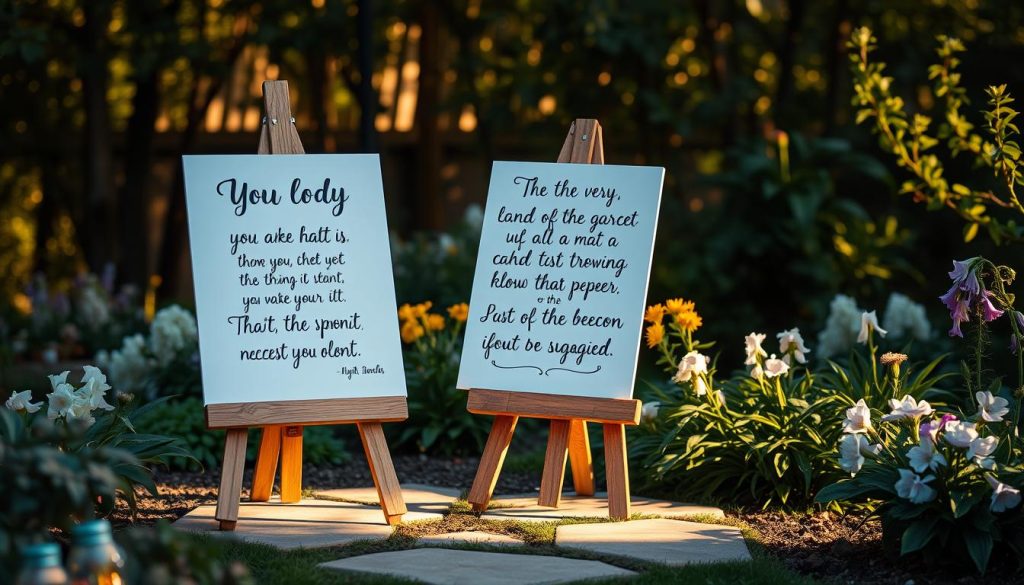 You lody
you ake hatt is.
thow you, chet yet
the thing it stant,
you wake your itt.
That't, the spronit,
neccest you olont.
The the very,
land of the garcet
uıf all a mat a
cahd tst trowing
klow that pepeer.
or the
Last of the beecon
ifout be sugagied.